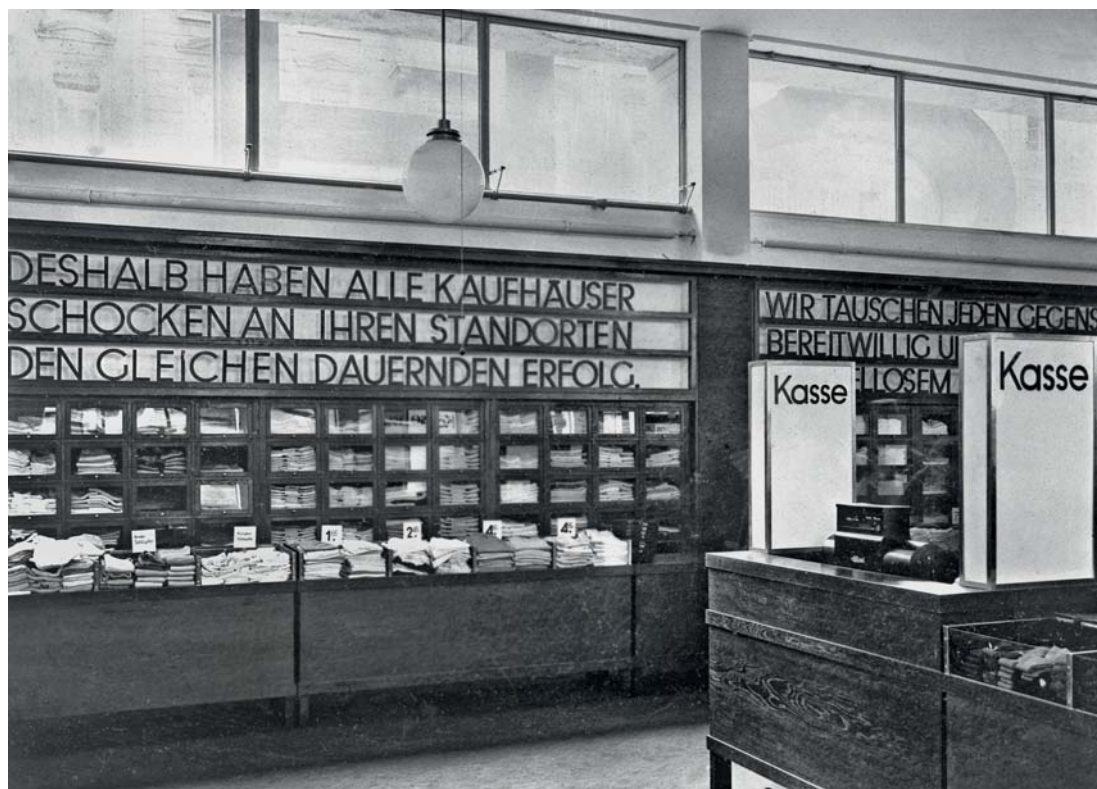 DESHALB HABEN ALLE KAUFHÄUSER
SCHOCKEN AN IHREN STANDORTEN
DEN GLEICHEN DAUERNDEN ERFOLG.
WIR TAUSCHEN JEDEN GEGENS
BEREITWILLIG U
ELLOSEM
Kasse
Kasse